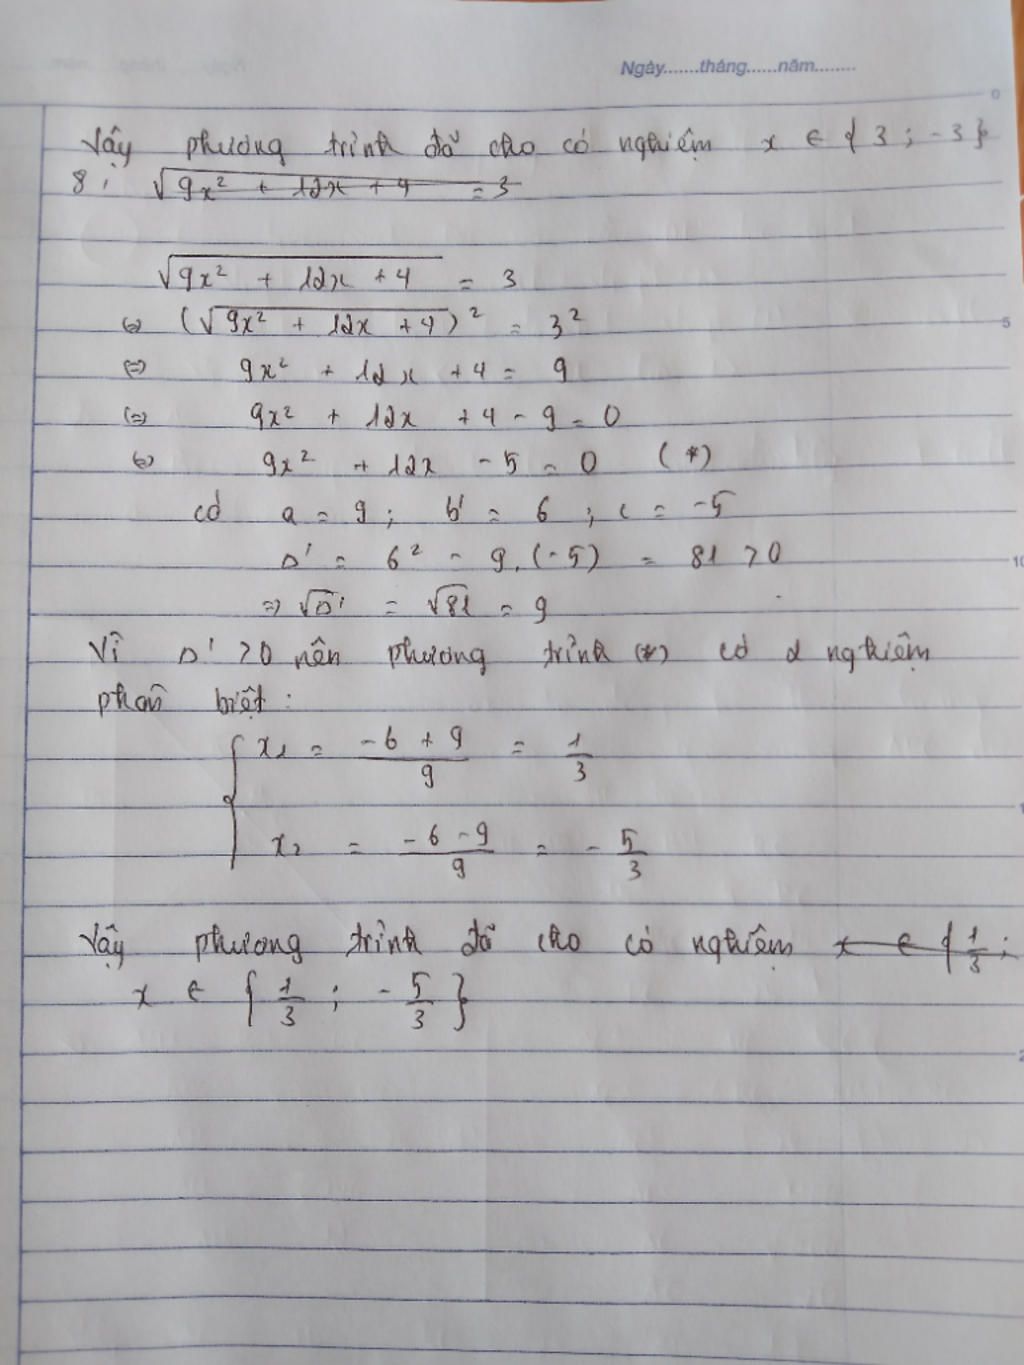 Ngày.......tháng......năm........
Vậy phương trình đã cho có nghiệm x ∈ { 3 ; -3 }
8, √(9x² + 12x + 4) = 3
√(9x² + 12x + 4) = 3
(=) (√(9x² + 12x + 4))² = 3²
(=) 9x² + 12x + 4 = 9
(=) 9x² + 12x + 4 - 9 = 0
(=) 9x² + 12x - 5 = 0 (*)
có a = 9 ; b' = 6 ; c = -5
Δ' = 6² - 9.(-5) = 81 > 0
=> √Δ' = √81 = 9
Vì Δ' > 0 nên phương trình (*) có 2 nghiệm
phân biệt :
{ x₁ = (-6 + 9)/9 = 1/3
x₂ = (-6 - 9)/9 = - 5/3
Vậy phương trình đã cho có nghiệm x ∈ { 1/3 ;
x ∈ { 1/3 ; - 5/3 }
0
5
10